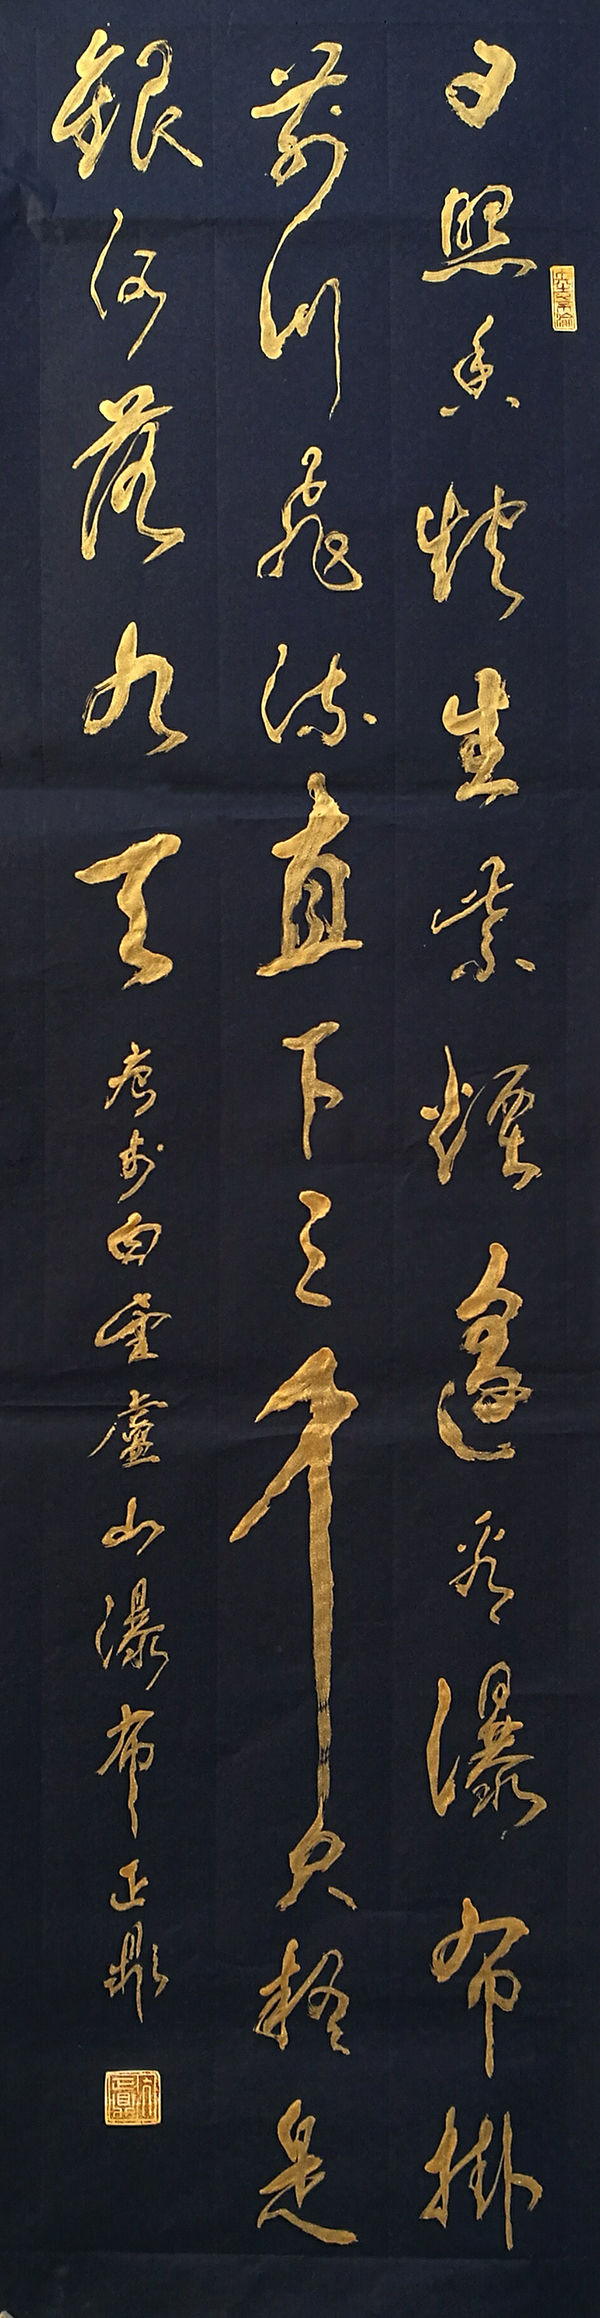 日照香炉生紫煙遙看瀑布掛
前川飛流直下三千尺疑是
銀河落九天 唐李白望廬山瀑布 正鼎